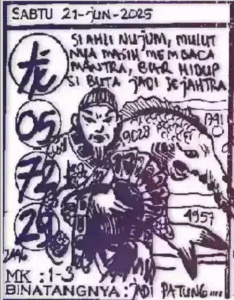 SABTU 21-JUN-2025
龙
SI AHLI NUJUM, MULUT
NYA MASIH MEMBACA
MANTRA, BUR HIDUP
SI BUTA JADI SEJAHTRA
05
9028
1791
72
29
4957
MK : 1-3
BINATANGNYA : JADI PATUNG....